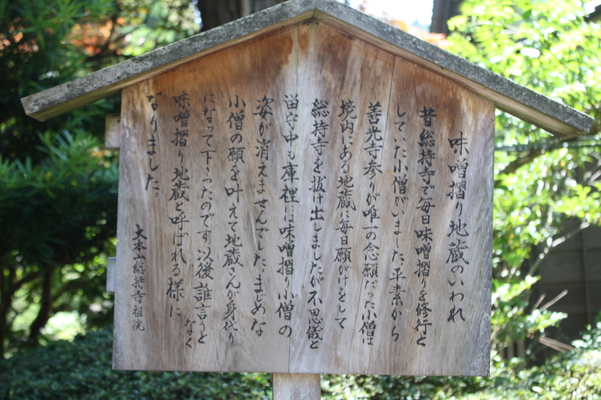 味噌摺り地蔵のいわれ
昔総持寺で毎日味噌摺りを修行と
していた小僧がいました。平素から
善光寺参りが唯一の念願だった小僧は
境内にある地蔵に毎日願がけをして
総持寺を抜け出しましたが不思儀と
留守中も庫裡には味噌摺り小僧の
姿が消えませんでした。まじめな
小僧の願を叶えて地蔵さんが身代り
になって下さったのです。以後誰言うとなく
味噌摺り地蔵と呼ばれる様に
なりました。
大本山総持寺祖院